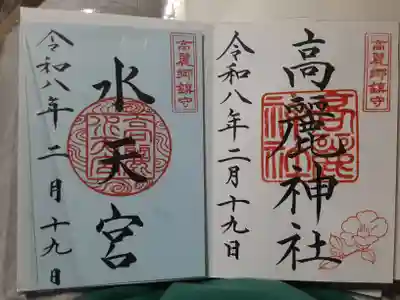 高麗郷鎮守
高麗神社
令和八年二月十九日
高麗郷鎮守
水天宮
令和八年二月十九日